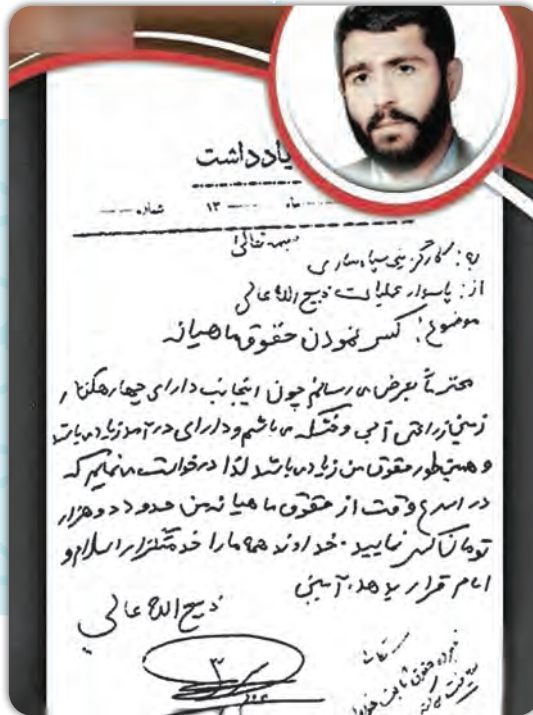 یادداشت
ماه ۱۳ شماره
بسمه تعالی
به: کارگزینی سپاه ساری
از: پاسدار عملیات ذبیح الله عالی
موضوع: کسر نمودن حقوق ماهیانه
محترماً بعرض می رسانم چون اینجانب دارای چهار هکتار
زمین زراعتی آبی و خشکه می باشم و دارای درآمد زیاد می باشد
و همینطور حقوق من زیاد می باشد لذا درخواست می نمایم که
در اسرع وقت از حقوق ماهیانه من حدود دو هزار
تومان کسر نمایید. خداوند همه ما را خدمتگزار اسلام و
امام قرار بدهد. آمین
ذبیح الله عالی
۳
حقوق ثابت